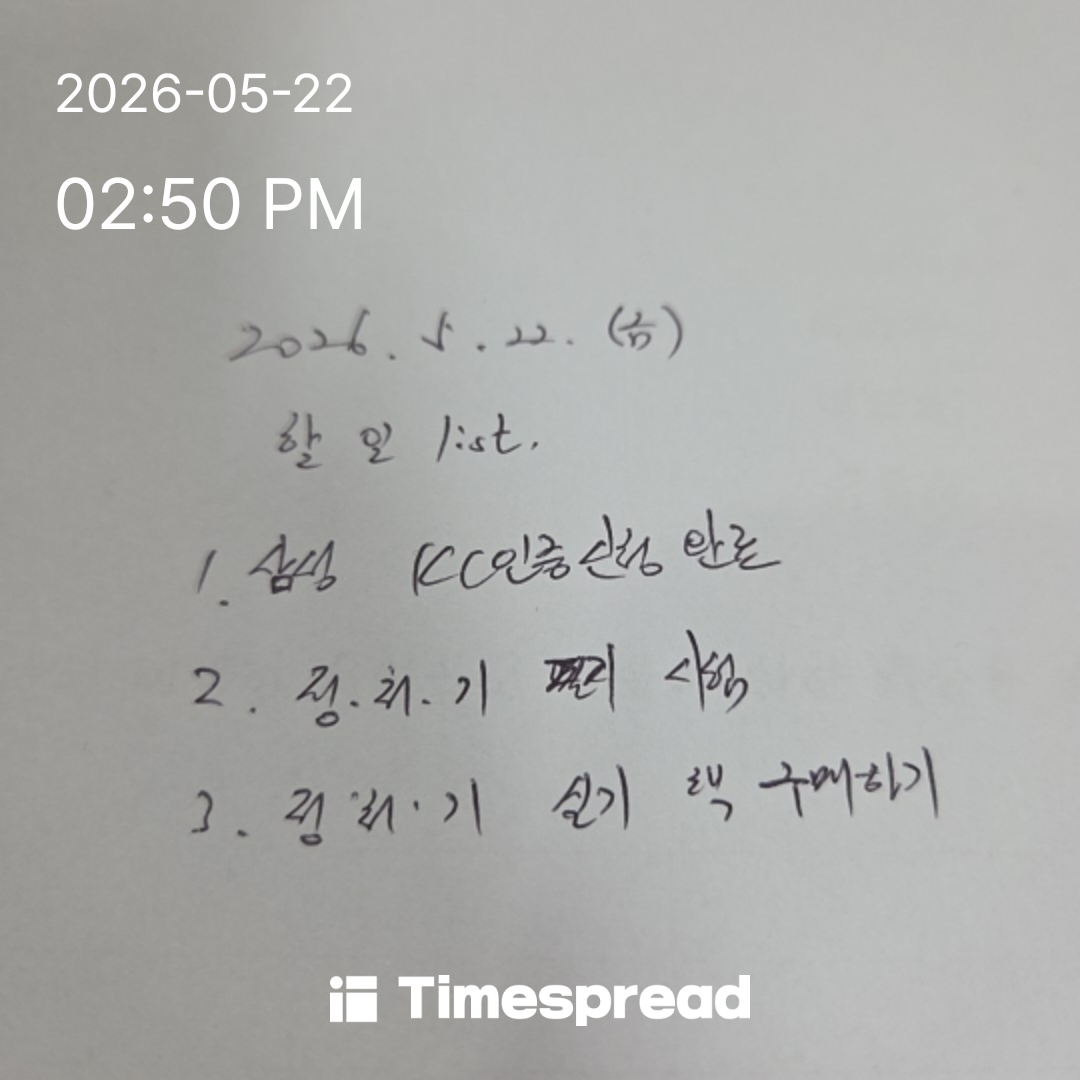 2026-05-22
02:50 PM
2026. 5. 22. (금)
할 일 list.
1. 삼성 KC인증신청 완료
2. 정.처.기 필기 시험
3. 정.처.기 실기 책 구매하기
Timespread